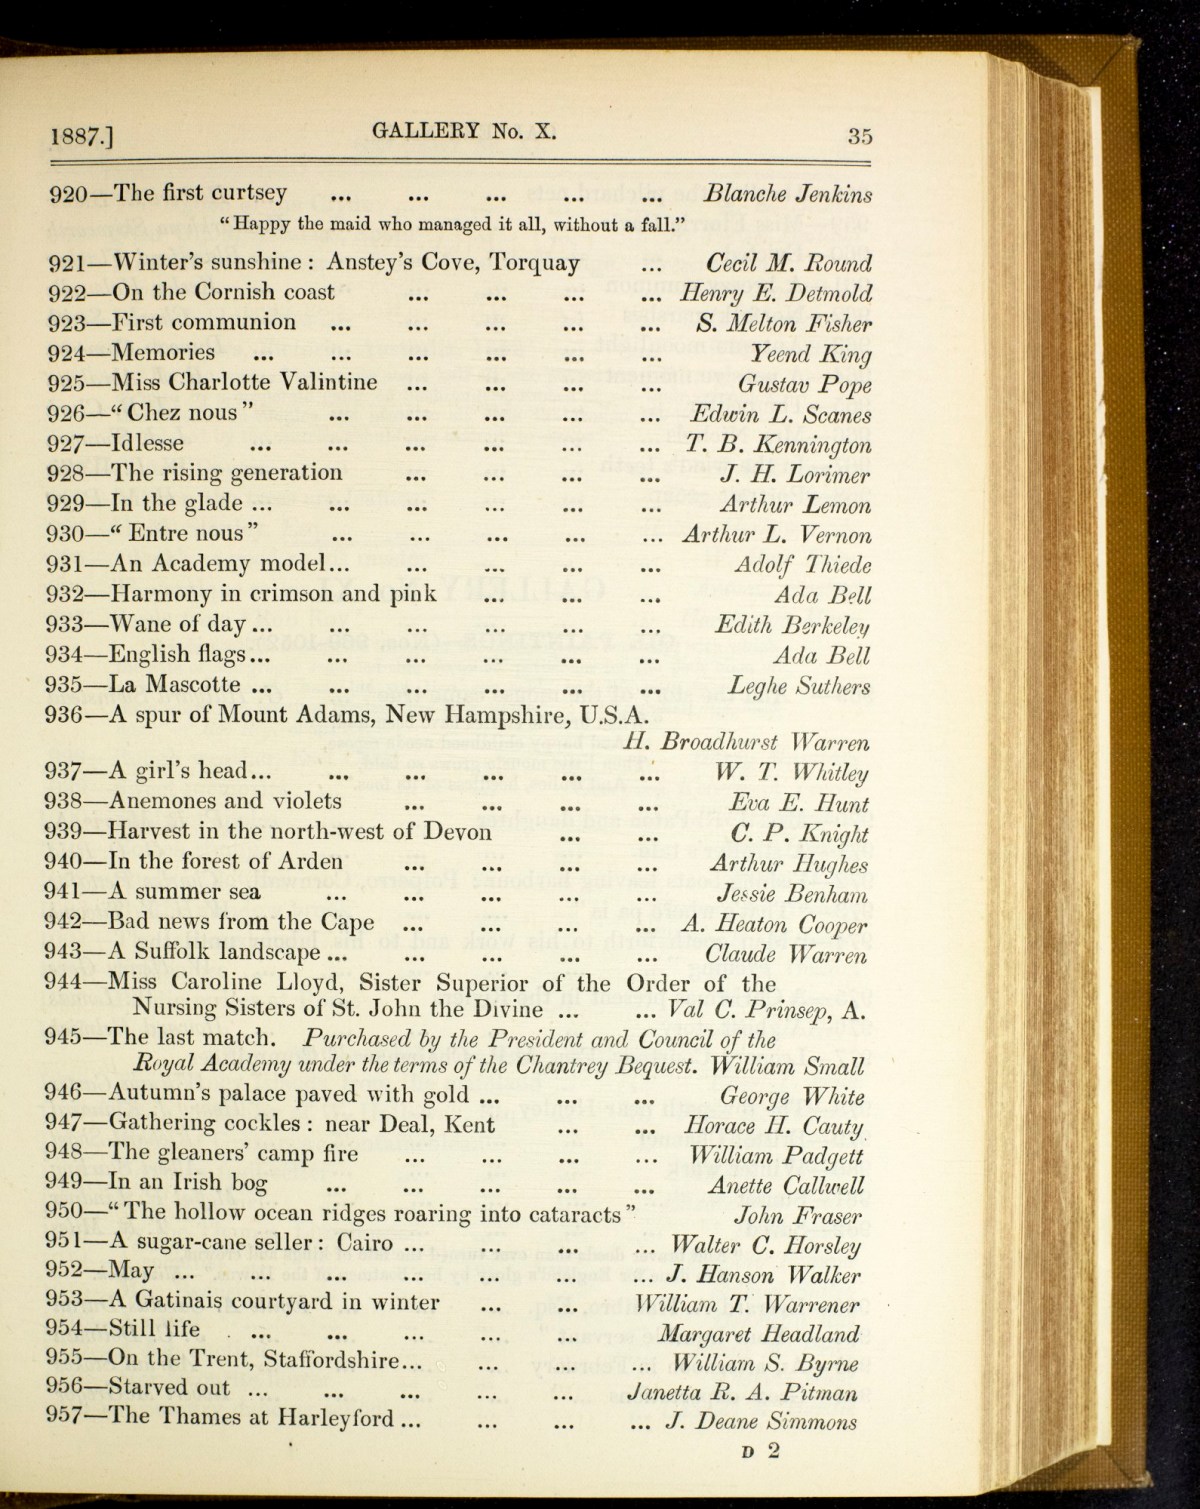 1887.] GALLERY No. X. 35
920—The first curtsey ... ... ... ... ... Blanche Jenkins
“Happy the maid who managed it all, without a fall.”
921—Winter's sunshine : Anstey's Cove, Torquay ... Cecil M. Round
922—On the Cornish coast ... ... ... ... Henry E. Detmold
923—First communion ... ... ... ... ... S. Melton Fisher
924—Memories ... ... ... ... ... ... Yeend King
925—Miss Charlotte Valintine ... ... ... ... Gustav Pope
926—“Chez nous” ... ... ... ... ... Edwin L. Scanes
927—Idlesse ... ... ... ... ... ... T. B. Kennington
928—The rising generation ... ... ... ... J. H. Lorimer
929—In the glade ... ... ... ... ... ... Arthur Lemon
930—“Entre nous” ... ... ... ... ... Arthur L. Vernon
931—An Academy model... ... ... ... ... Adolf Thiede
932—Harmony in crimson and pink ... ... ... Ada Bell
933—Wane of day ... ... ... ... ... ... Edith Berkeley
934—English flags... ... ... ... ... ... Ada Bell
935—La Mascotte ... ... ... ... ... ... Leghe Suthers
936—A spur of Mount Adams, New Hampshire, U.S.A.
H. Broadhurst Warren
937—A girl's head... ... ... ... ... ... W. T. Whitley
938—Anemones and violets ... ... ... ... Eva E. Hunt
939—Harvest in the north-west of Devon ... ... C. P. Knight
940—In the forest of Arden ... ... ... ... Arthur Hughes
941—A summer sea ... ... ... ... ... Jessie Benham
942—Bad news from the Cape ... ... ... ... A. Heaton Cooper
943—A Suffolk landscape ... ... ... ... ... Claude Warren
944—Miss Caroline Lloyd, Sister Superior of the Order of the
Nursing Sisters of St. John the Divine ... ... Val C. Prinsep, A.
945—The last match. Purchased by the President and Council of the
Royal Academy under the terms of the Chantrey Bequest. William Small
946—Autumn's palace paved with gold ... ... ... George White
947—Gathering cockles : near Deal, Kent ... ... Horace H. Cauty
948—The gleaners' camp fire ... ... ... ... William Padgett
949—In an Irish bog ... ... ... ... ... Anette Callwell
950—“The hollow ocean ridges roaring into cataracts” John Fraser
951—A sugar-cane seller : Cairo ... ... ... ... Walter C. Horsley
952—May ... ... ... ... ... ... ... J. Hanson Walker
953—A Gatinais courtyard in winter ... ... William T. Warrener
954—Still life ... ... ... ... ... Margaret Headland
955—On the Trent, Staffordshire... ... ... ... William S. Byrne
956—Starved out ... ... ... ... ... Janetta R. A. Pitman
957—The Thames at Harleyford ... ... ... ... J. Deane Simmons
D 2